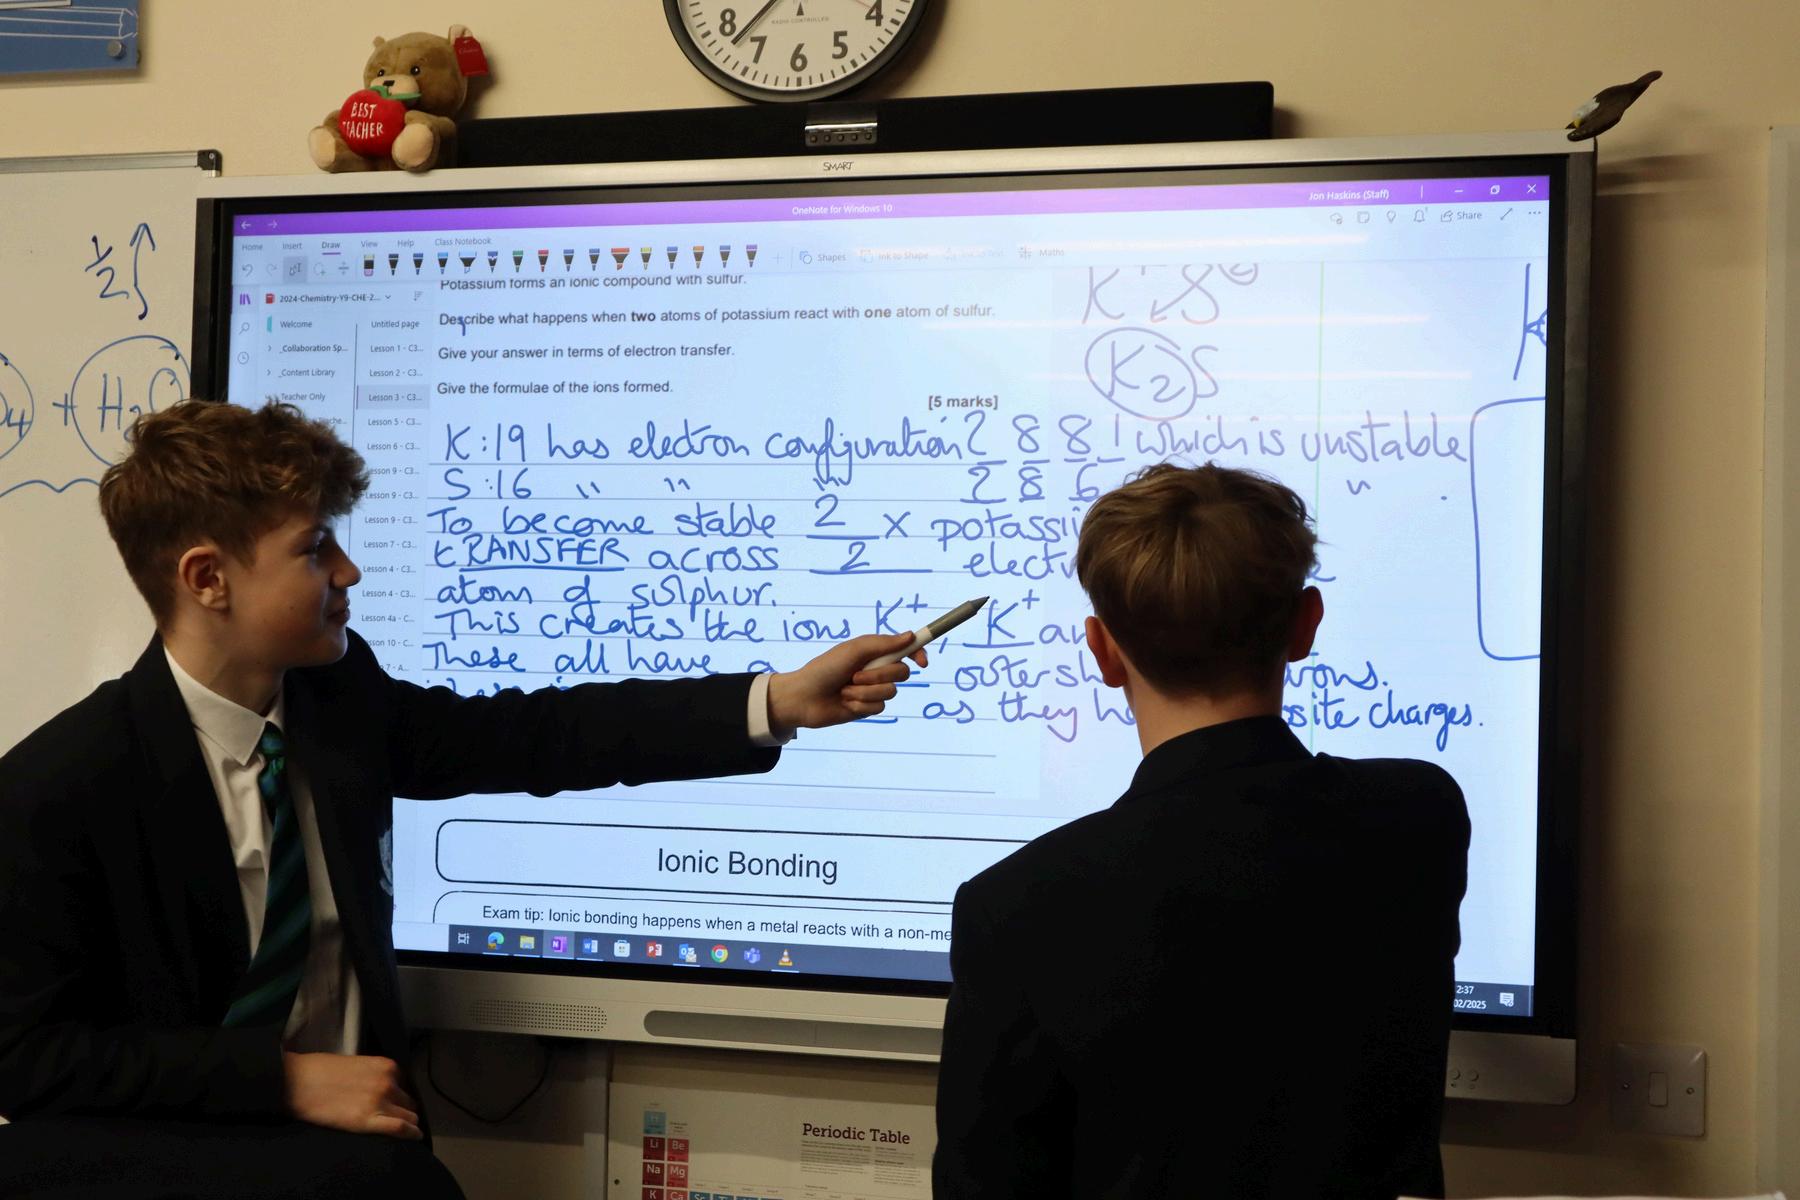 8 7 6 5 4
RADIO CONTROLLED
BEST
TEACHER
SMART
OneNote for Windows 10
Jon Haskins (Staff)
Home Insert Draw View Help Class Notebook
Share
Shapes Ink to Shape Ink to Text Maths
2024-Chemistry-Y9-CHE-2...
Welcome
_Collaboration Sp...
_Content Library
Teacher Only
Untitled page
Lesson 1 - C3...
Lesson 2 - C3...
Lesson 3 - C3...
Lesson 5 - C3...
Lesson 6 - C3...
Lesson 9 - C3...
Lesson 9 - C3...
Lesson 9 - C3...
Lesson 7 - C3...
Lesson 4 - C3...
Lesson 4 - C3...
Lesson 4a - C...
Lesson 10 - C...
7 - A...
Potassium forms an ionic compound with sulfur.
Describe what happens when two atoms of potassium react with one atom of sulfur.
Give your answer in terms of electron transfer.
Give the formulae of the ions formed.
[5 marks]
K+ S
K2S
K:19 has electron configuration 2 8 8 1 which is unstable
S:16 " " " 2 8 6 " .
To become stable 2 x potassi
tRANSFER across 2 electr
atom of sulphur.
This creates the ions K+, K+ an
These all have a outer sh rons.
as they ha site charges.
Ionic Bonding
Exam tip: Ionic bonding happens when a metal reacts with a non-me
2:37
02/2025
1/2
4 + H2O
Periodic Table
H
Li Be
Na Mg
K Ca Sc Ti